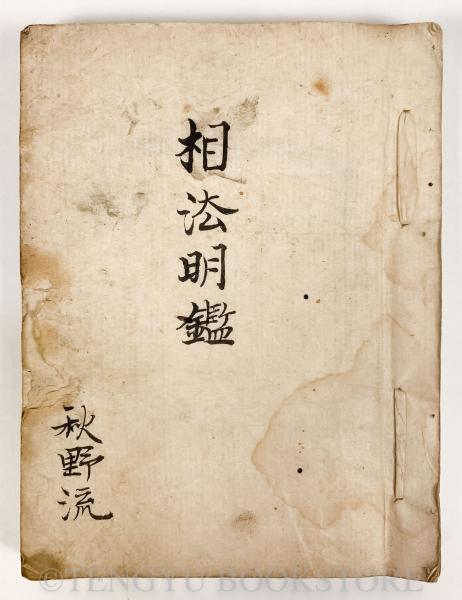 相法明鑑
秋野流
©TENGYU BOOKSTORE